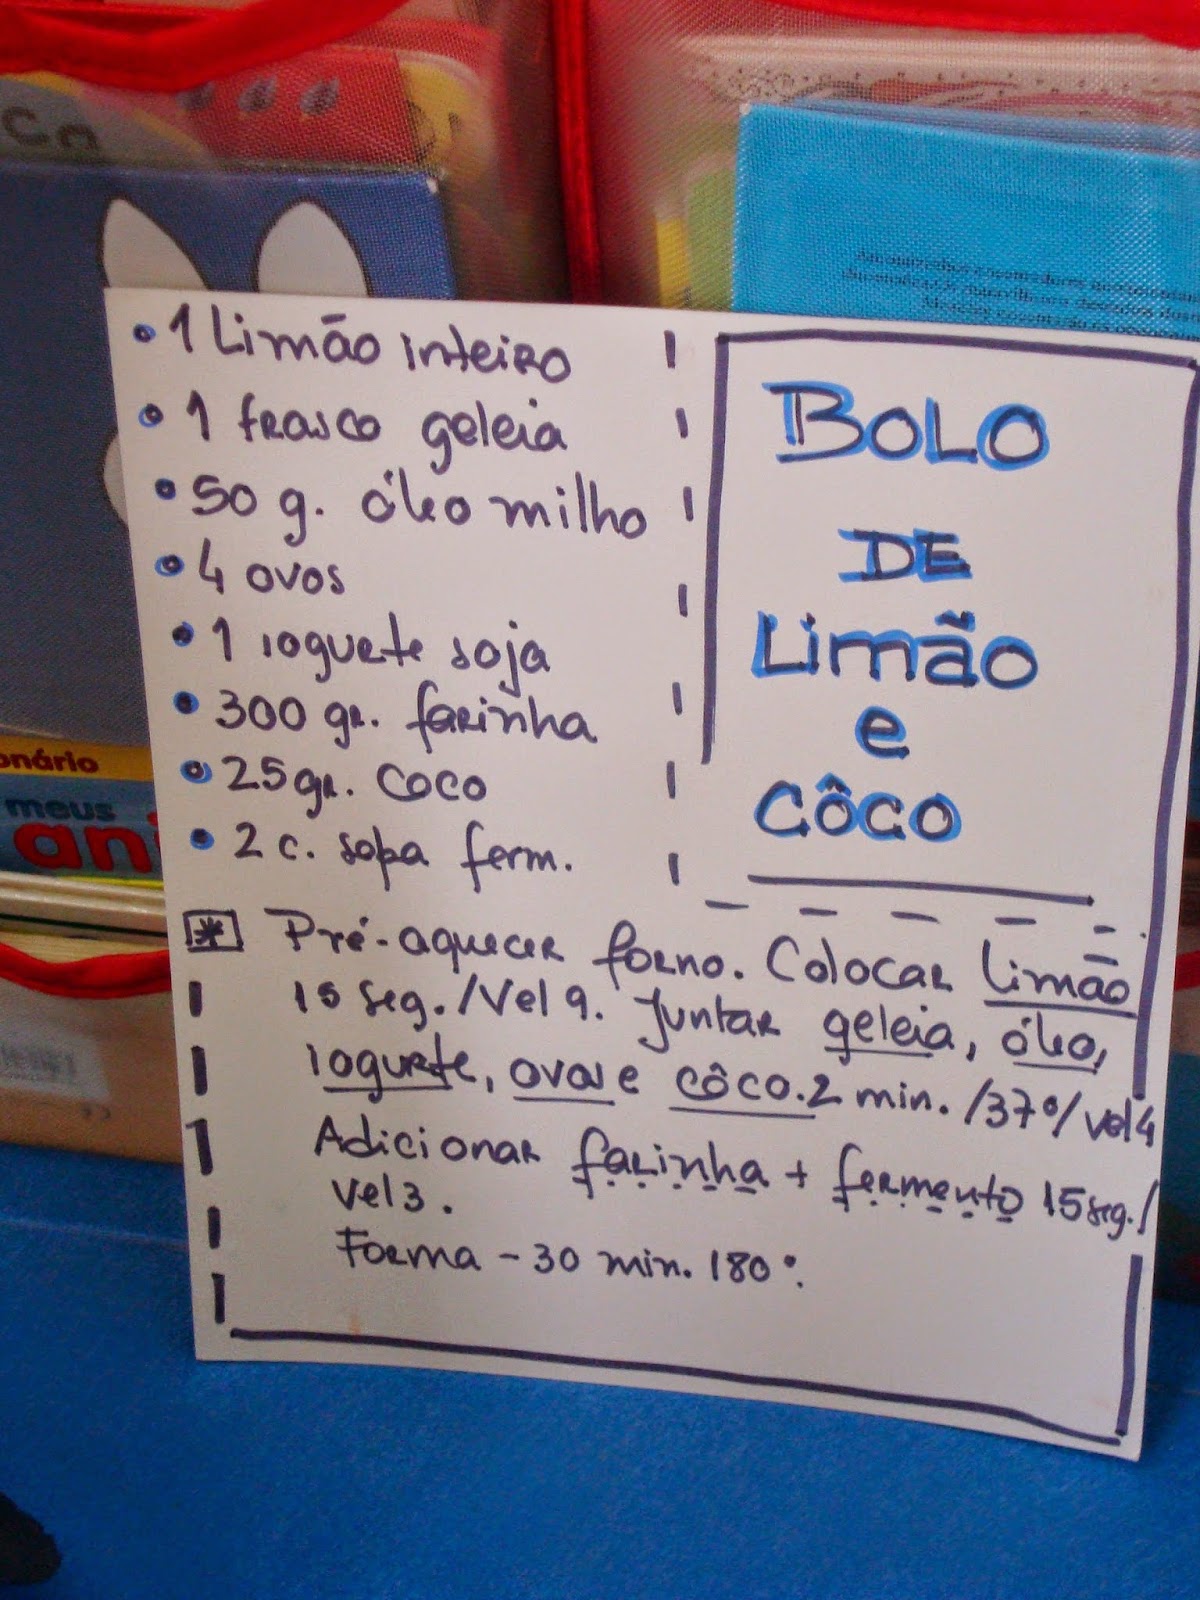 • 1 Limão inteiro
• 1 frasco geleia
• 50 g. óleo milho
• 4 ovos
• 1 iogurte soja
• 300 gr. farinha
• 25 gr. coco
• 2 c. sopa ferm.
BOLO
DE
Limão
e
CÔCO
* Pré-aquecer forno. Colocar limão
15 seg./Vel 9. Juntar geleia, óleo,
iogurte, ovos e côco. 2 min. /37º/ vel 4
Adicionar farinha + fermento 15 seg./
vel 3.
Forma - 30 min. 180º.
onário
meus
ani